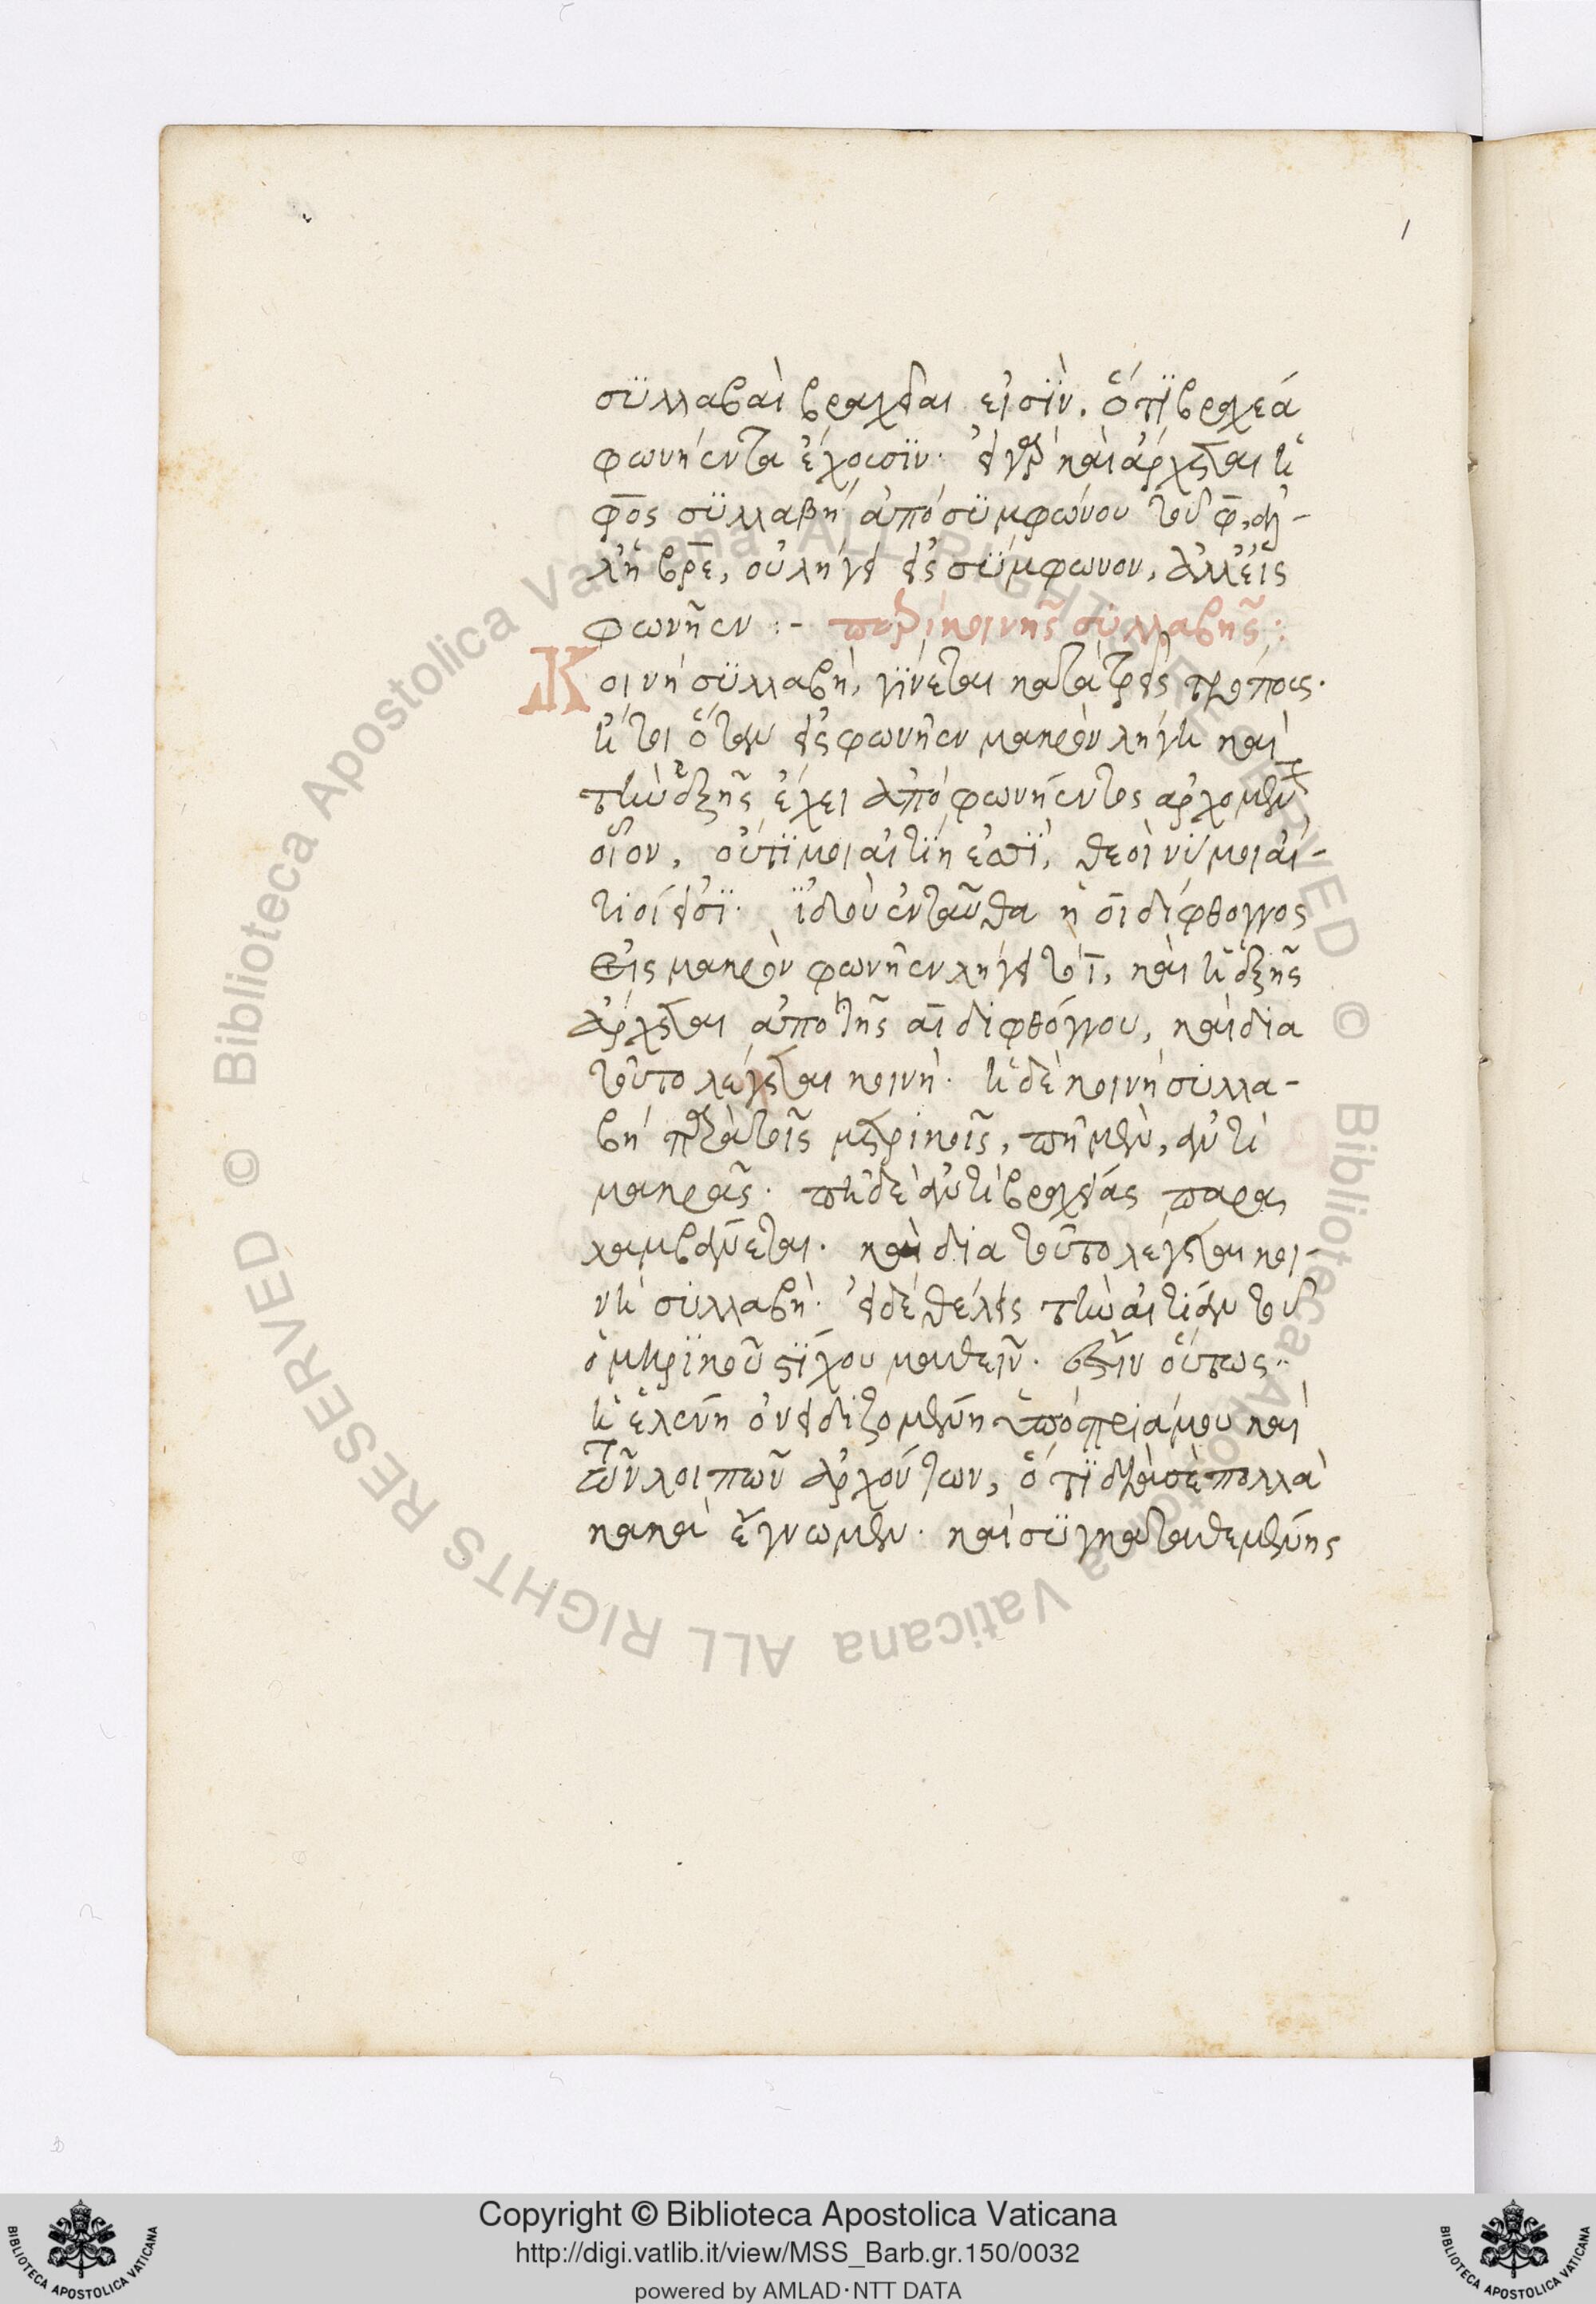 συλλαβαὶ βραχεῖαι εἰσὶν. ὅτι βραχέα
φωνήεντα ἔχουσιν· εἰ γὰρ καὶ ἄρχεται ἡ
φο̅ς συλλαβή ἀπὸ συμφώνου τοῦ φ̅,
βρε̅, οὐ λήγει εἰς σύμφωνον, ἀλλ' εἰς
φωνῆεν :- περὶ κοινῆς συλλαβῆς:
Κοινή συλλαβή, γίνεται κατὰ τρεῖς τρόπους.
ἤτοι ὅταν εἰς φωνῆεν μακρὸν λήγη καὶ
τὴν ἑξῆς ἔχει ἀπὸ φωνήεντος ἀρχομένην
οἷον, οὔτι μοι αἰτίη ἐσσί, θεοί νύ μοι αἴ-
τιοί εἰσι· ἰδοὺ ἐνταῦθα ἡ οι̅ δίφθογγος
εἰς μακρὸν φωνῆεν λήγει τὸ ι̅, καὶ ἡ ἑξῆς
ἄρχεται ἀπὸ τῆς αι̅ διφθόγγου, καὶ δια
τοῦτο λέγεται κοινή· ἡ δὲ κοινὴ συλλα-
βή παρὰ τοῖς μετρικοῖς, πῆ μὲν, ἀντὶ
μακρᾶς· πῆ δὲ ἀντὶ βραχείας παρα
λαμβάνεται· καὶ δια τοῦτο λέγεται κοι-
νὴ συλλαβή· εἰ δὲ θέλεις τὴν αἰτίαν τοῦ
ὁμηρικοῦ στίχου μαθεῖν. ἐστὶν οὕτως..
ἡ ἑλένη ὀνειδιζομένη ὑπὸ πριάμου καὶ
τῶν λοιπῶν ἀρχόντων, ὅτι διὰ σὲ πολλὰ
κακὰ ἔγνωμεν· καὶ συγκατατιθεμένης
Copyright © Biblioteca Apostolica Vaticana
http://digi.vatlib.it/view/MSS_Barb.gr.150/0032
powered by AMLAD·NTT DATA